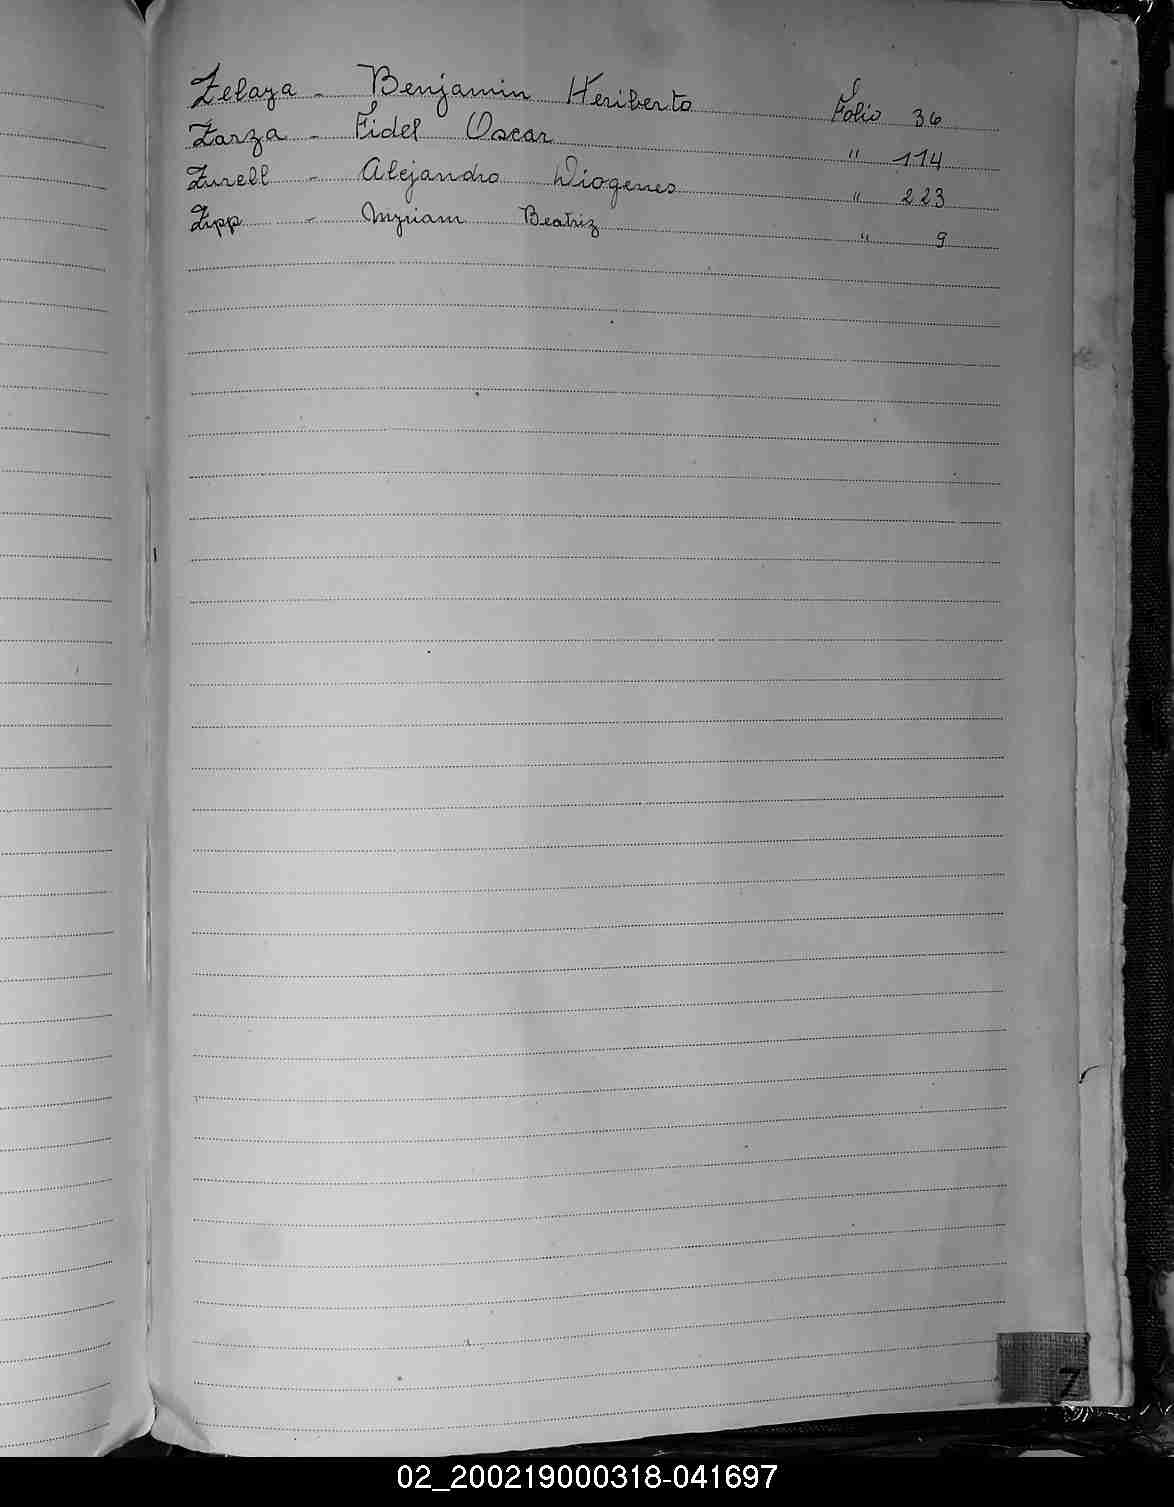 Zelaya - Benjamin Heriberto Folio 36
Zarza - Fidel Oscar " 114
Zurell - Alejandro Diogenes " 223
Zipp - Myriam Beatriz " 9
Z
02_200219000318-041697